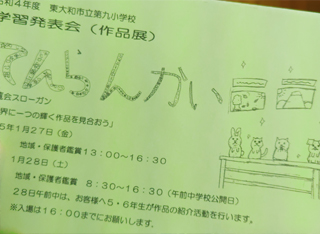 和4年度 東大和市立第九小学校
学習発表会(作品展)
てんらんかい
会スローガン
界に一つの輝く作品を見合おう」
5年1月27日(金)
地域・保護者鑑賞13:00~16:30
1月28日(土)
地域・保護者鑑賞 8:30~16:30(午前中学校公開日)
28日午前中は、お客様へ5・6年生が作品の紹介活動を行います。
※入場は16:00までにお願いします。